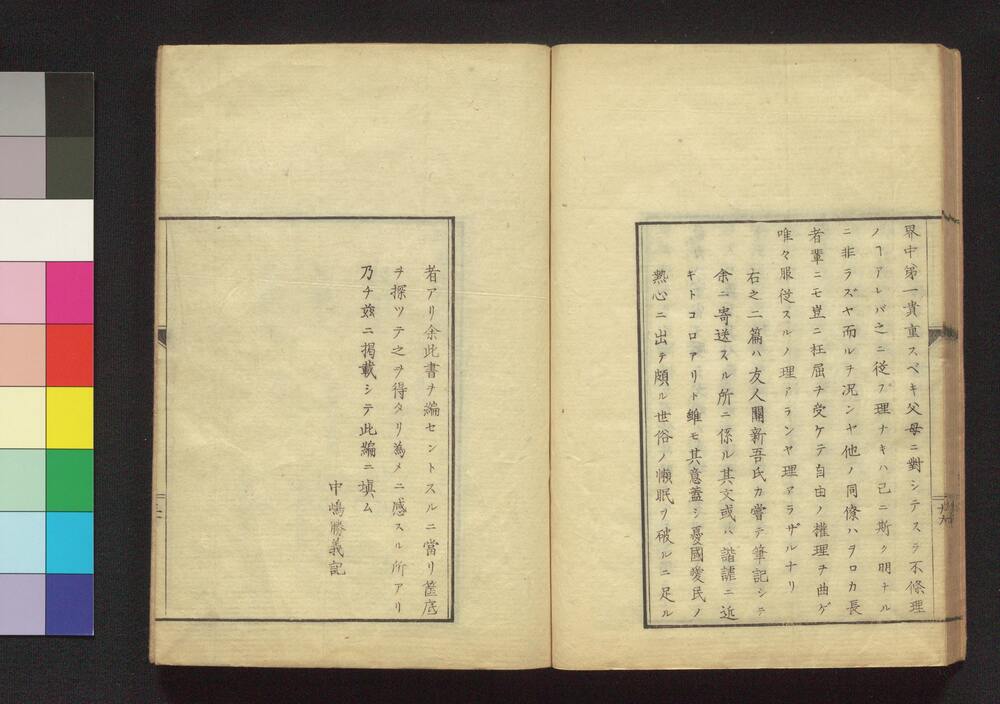 界中第一貴重スベキ父母ニ對シテスラ不條理
ノヿアレバ之ニ從フ理ナキハ已ニ斯ク明ナル
ニ非ラズヤ而ルヲ况ンヤ他ノ同條ハヲロカ長
者輩ニモ豈ニ枉屈ヲ受ケテ自由ノ權理ヲ曲ゲ
唯々服從スルノ理アランヤ理アラザルナリ
右之二篇ハ友人關新吾氏カ嘗テ筆記シテ
余ニ寄送スル所ニ係ル其文或ハ諧謔ニ近
キトコロアリト雖モ其意蓋シ憂國愛民ノ
熱心ニ出テ頗ル世俗ノ懶眠ヲ破ルニ足ル
者アリ余此書ヲ編セントスルニ當リ篋底
ヲ探ツテ之ヲ得タリ為メニ感スル所アリ
乃チ玆ニ掲載シテ此編ニ塡ム
中嶋勝義記